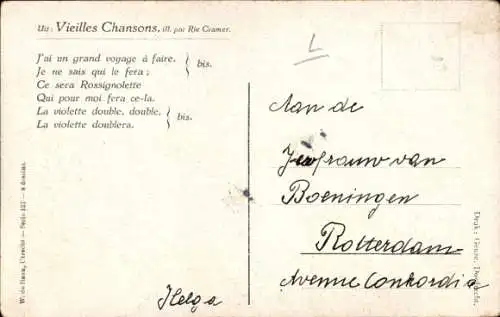 Uit: Vieilles Chansons, ill. par Rie Cramer.
J'ai un grand voyage à faire,
Je ne sais qui le fera;
bis.
Ce sera Rossignolette
Qui pour moi fera ce-la.
La violette double, double,
La violette doublera.
bis.
L
Aan de
Jeofrauw van
Boeningen
Rotterdam
Avenue Conkordia
Helga
W. de Haan, Utrecht — Serie 122 — 8 dessins.
Druk: Geuze, Dordrecht.